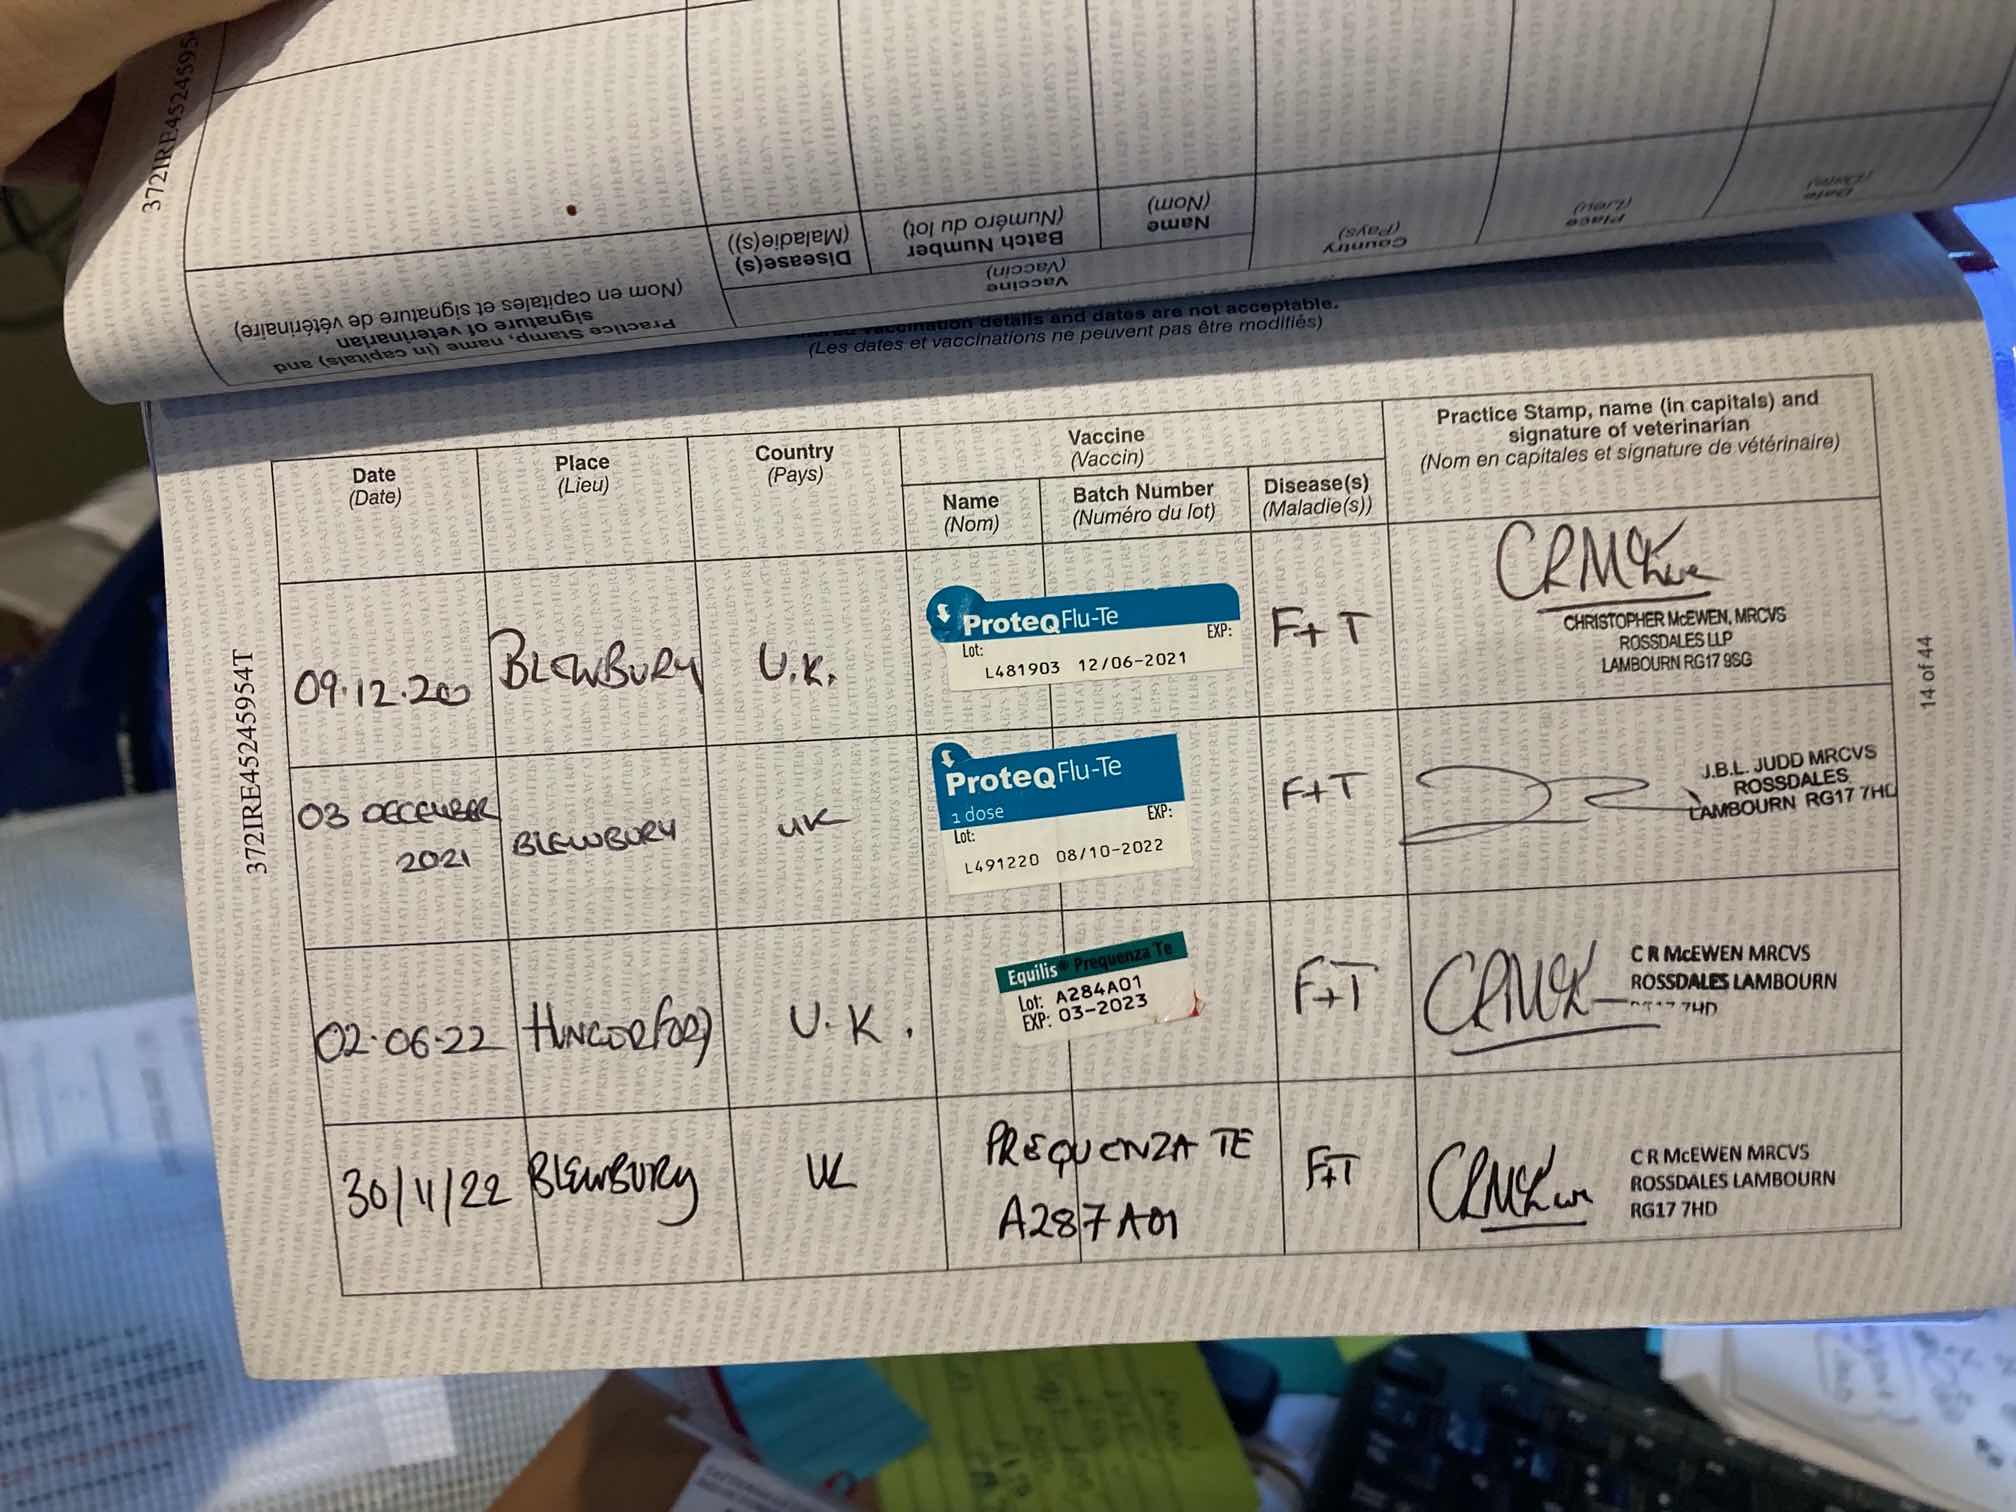 372IRE4524595
Practice Stamp, name (in capitals) and
signature of veterinarian
(Nom en capitales et signature de vétérinaire)
Vaccine
(Vaccin)
Disease(s)
(Maladie(s))
Batch Number
(Numéro du lot)
Name
(Nom)
Country
(Pays)
Place
(Lieu)
Date
(Date)
vaccination details and dates are not acceptable.
(Les dates et vaccinations ne peuvent pas être modifiés)
372IRE452459954T
Date
(Date)
Place
(Lieu)
Country
(Pays)
Vaccine
(Vaccin)
Name
(Nom)
Batch Number
(Numéro du lot)
Disease(s)
(Maladie(s))
Practice Stamp, name (in capitals) and
signature of veterinarian
(Nom en capitales et signature de vétérinaire)
09.12.200
BLEWBURY
U.K.
ProteqFlu-Te
Lot: EXP:
L481903 12/06-2021
F+T
CRMcEwen
CHRISTOPHER McEWEN, MRCVS
ROSSDALES LLP
LAMBOURN RG17 9SG
03 DECEMBER
2021
BLEWBURY
UK
ProteqFlu-Te
1 dose
Lot: EXP:
L491220 08/10-2022
F+T
J.B.L. JUDD MRCVS
ROSSDALES
LAMBOURN RG17 7HD
02.06.22
HUNGERFORD
U.K.
Equilis® Prequenza Te
Lot: A284A01
EXP: 03-2023
F+T
C R McEWEN MRCVS
ROSSDALES LAMBOURN
7HD
30/11/22
BLEWBURY
UK
PREQUENZA TE
A287A01
F+T
CRMcEwen
C R McEWEN MRCVS
ROSSDALES LAMBOURN
RG17 7HD
14 of 44